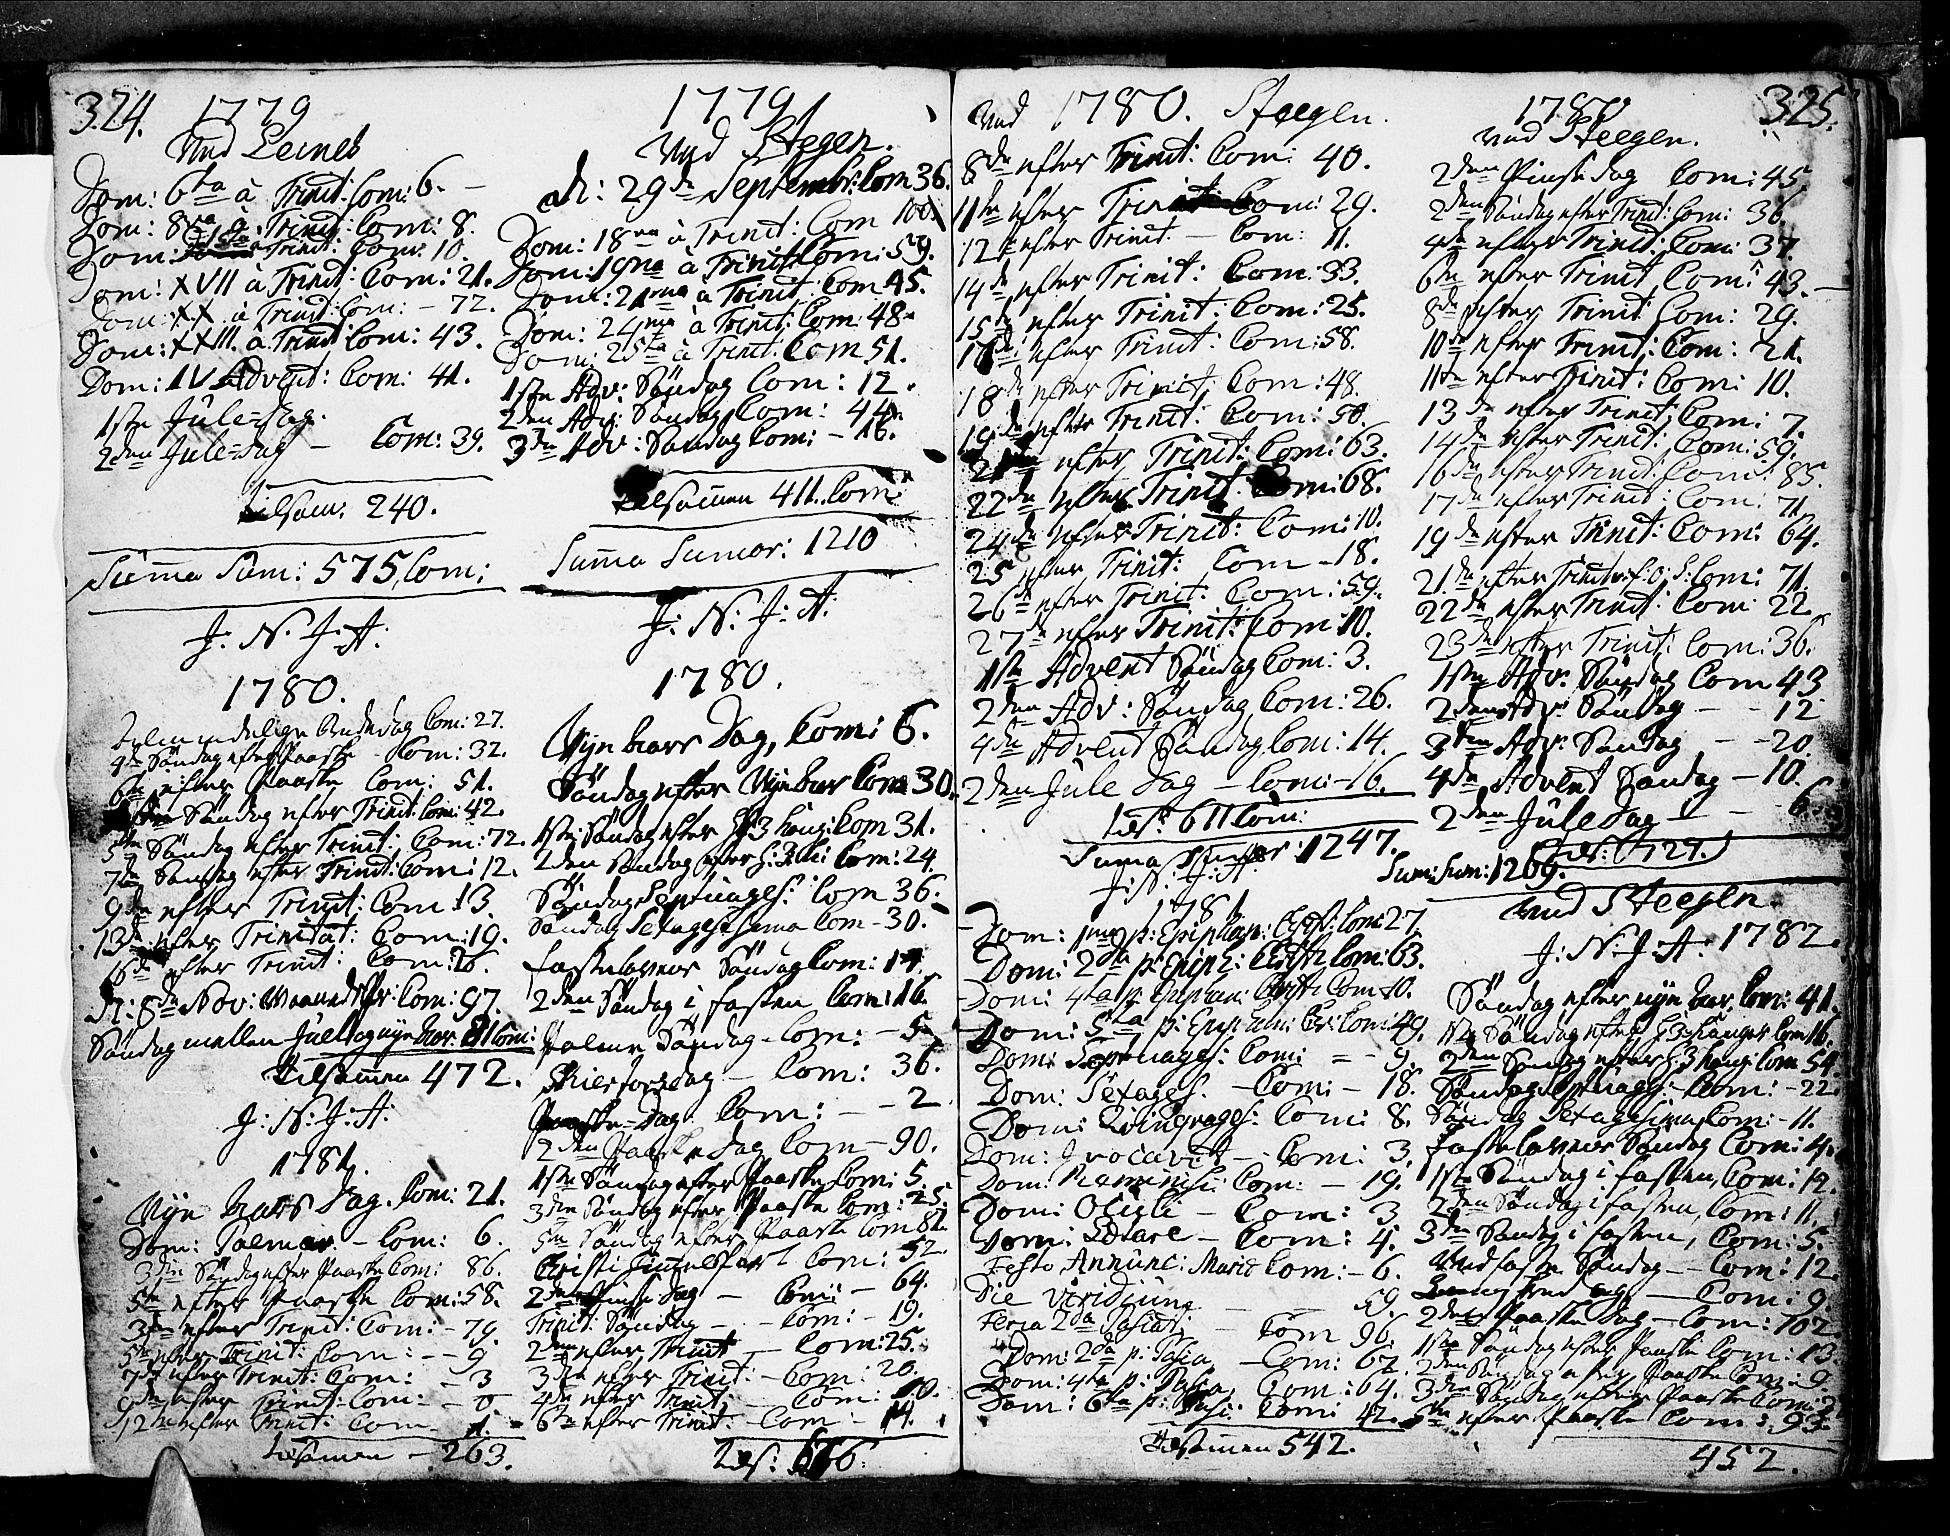 324. 1779
Ved Leines
Dom: 6ta à Trinit: Com: 6. –
Dom: 8va à Trinit: Com: 8.
Dom: à Trinit: Com: 10.
Dom: XVII à Trinit: Com: 21.
Dom: XX à Trinit: Com: – 72.
Dom: XXIII à Trinit Com: 43.
Dom: IV Advent: Com: 41.
1ste Jule=dag.
2den Jule=dag – Com: 39.
tilsam: 240.
Suma Sum: 575 Com:
J: N: J: A:
1780.
Com: 27.
4de Söndag efter Paaske – Com: 32.
6te efter Paaske Com: 51.
Söndag efter Trinit: Com: 42.
5te Söndag efter Trinit: Com: 72.
7de Söndag efter Trinit: Com: 12.
9de efter Trinit: Com: 13.
13de efter Trinitat: Com: 19.
16de efter Trinit: Com: 26.
d: 8de Nov: Com: 97.
Söndag mellem Jull og nyeaar. 81 Com:
Tilsamen 472.
J: N: J: A:
1781.
Nye Aars Dag. Com: 21.
Dom: Palmar. – Com: 6.
3die Söndag efter Paaske Com: 86.
5te efter Paaske Com: 58.
3die efter Trinit: Com: – 79.
5te efter Trinit: Com: – – 9
7de efter Trinit: Com: – 3
9de efter Trinit: Com: – 0
12te efter Trinit: Com – 1.
tilsamen – 263.
1779
Ved Stegen.
d: 29de Septembr: Com 36.
Dom: 18va à Trinit: Com 100.
Dom: 19na à Trinit: Com: 59.
Dom: 21ma à Trinit: Com 45.
Dom: 24ma à Trinit: Com: 48
Dom: 25ta à Trinit: Com 51.
1ste Adv: Söndag Com: 12.
2den Adv: Söndag Com: 44.
3die Adv: Söndag Com: – 16.
tilsamen 411. Com:
Suma Sumar: 1210
J: N: J: A:
1780.
Nye Aars Dag, Com: 6.
Söndag efter Nyeaar Com 30.
1ste Söndag efter H: 3 Kong: Com 31.
2den Söndag efter H: 3 K: Com: 24
Söndag Septuages: Com 36.
Söndag Sexagesima Com – 30.
Fastelavens Söndag Com: 14.
2den Söndag i fasten Com: 16.
Palme Söndag – Com: – 5
Skiertorsdag – Com: 36.
Paaske=Dag Com: – – 2
2den Paaske Dag Com – 90.
1ste Söndag efter Paaske Com: 5.
3die Söndag efter Paaske Com: 25.
5te Söndag efter Paaske Com 81.
Christi Himmelfart Com: 52.
2den Pinse Dag – Com: – 64.
Trinit: Söndag – – Com: – 19.
2den efter Trinit – Com: 25.
3die efter Trinit: – Com: 20.
4de efter Trinit: – Com: 10.
6te efter Trinit: – Com – 14.
Tils: 676
Ved 1780. Steegen.
8de efter Trinit: Com: 40.
11te efter Trinit Com: 29.
12te efter Trinit – Com: 11.
14de efter Trinit: Com: 33.
15de efter Trinit: Com: 25.
16de efter Trinit: Com: 58.
18de efter Trinit: Com: 48.
19de efter Trinit: Com: 50.
21de efter Trinit: Com: 63.
22de efter Trinit: Com: 68.
24de efter Trinit: Com: 10.
25 efter Trinit: Com – 18.
26de efter Trinit: Com: 59.
27de efter Trinit: Com 10.
1ste Advent Söndag Com: 3.
2den Adv: Söndag Com: 26.
4de Advent Söndag Com: 14.
2den Jule Dag – Com: – 16.
tils: 611 Com:
Suma Sumar: 1247.
J: N: J: A:
1781
Dom: 1ma p: Epiphan: Christi: Com: 27.
Dom: 2da p: Epiph: Christi Com: 63.
Dom: 4ta p: Epiphan: Christi Com 10.
Dom: 5ta p: Epiphan: Chr: Com: 49.
Dom: Septuages: Com: – – 9.
Dom: Sexages. – Com: – 18.
Dom: Qvinqvages: Com: 8.
Dom: Invocavit – Com: 3.
Dom: Reminisc: Com: – 19.
Dom: Oculi – Com: 3
Dom: Lætare – Com: 4.
Festo Annunc: Mariæ Com: – 6.
Die Viridium – 59.
Feria 2da Pasch: – Com 96.
Dom: 2da p: Pasca – Com: 67.
Dom: 4ta p: Pasca Com: 64.
Dom: 6ta p: Pasc: Com: 42.
Tilsamen 542.
1780 325.
ved Steegen.
2den Pinse dag Com: 45
2den Söndag efter Trinit: Com: 36
4de efter Trinit: Com: 37.
6te efter Trinit Com: 43. –
8de efter Trinit Com: 29.
10de efter Trinit: Com: 21.
11te efter Trinit: Com: 10.
13de efter Trinit: Com: 7.
14de efter Trinit: Com: 59.
16de efter Trinit: Com: 85.
17de efter Trinit: Com: 71
19de efter Trinit: Com: 64.
21de efter Trinit: Com: 71.
22de efter Trinit: Com: 22.
23de efter Trinit: Com: 36.
1ste Adv: Söndag Com 43
2den Adv: Söndag – – 12
3die Adv: Söndag – – 20.
4de Advent Söndag – 10.
2den Jule Dag – – 6.
Tils: 727.
Sum: Sum: 1269.
ved Steegen.
J: N: J: A: 1782.
Söndag efter nye Aar Com: 41.
1ste Söndag efter H 3 Konger Com 16.
2den Söndag efter H 3 Kong: Com 54.
Söndag Septuages: – Com: – 22.
Söndag Sexagesima Com – 11.
Fastelavens Söndag Com: 4.
1ste Söndag i fasten, Com: 12.
2den Söndag i fasten, Com: 11.
3die Söndag i fasten, Com: 5.
Midfaste Söndag – Com: 12.
– Com: 9.
2den Paaske Dag – Com: 102
1ste Söndag efter Paaske Com: 13.
2den Söndag efter Paaske Com: 9
3die Söndag efter Paaske Com:
5te efter Paaske Com: 93.
452.